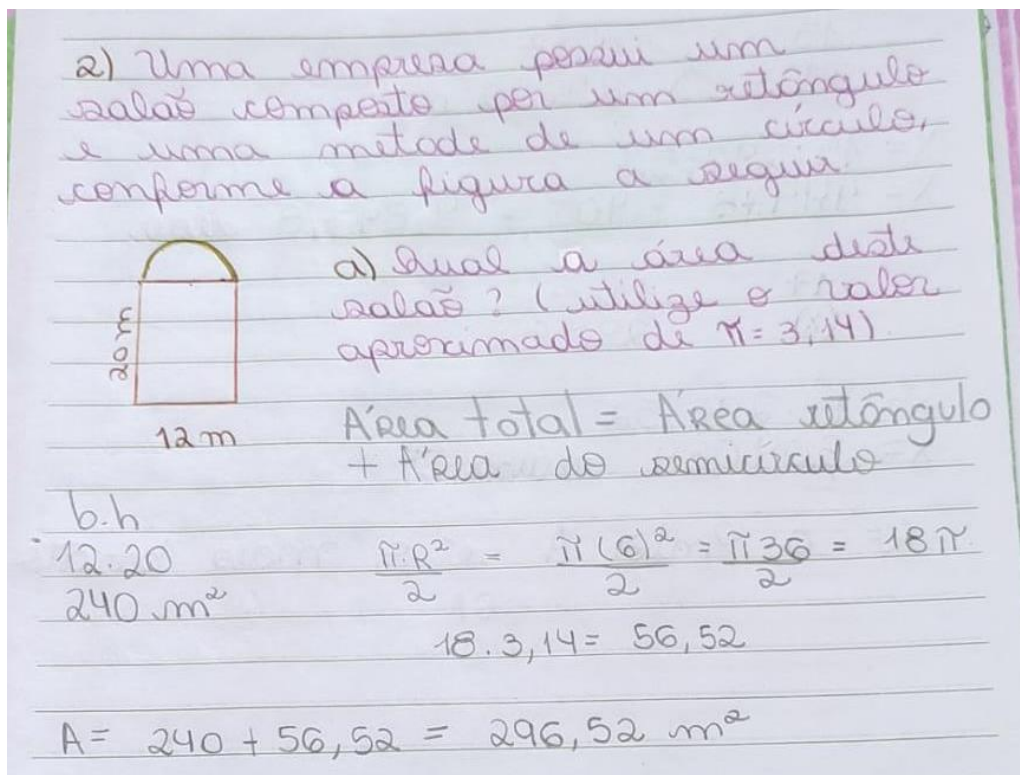 2) Uma empresa possui um
salão composto por um retângulo
e uma metade de um círculo,
conforme a figura a seguir.
a) Qual a área deste
salão? (utilize o valor
aproximado de π = 3,14)
20 m
12 m
Área total = Área retângulo
+ Área do semicírculo
b.h
12.20
240 m²
π.R²/2 = π(6)²/2 = π36/2 = 18π
18.3,14 = 56,52
A = 240 + 56,52 = 296,52 m²